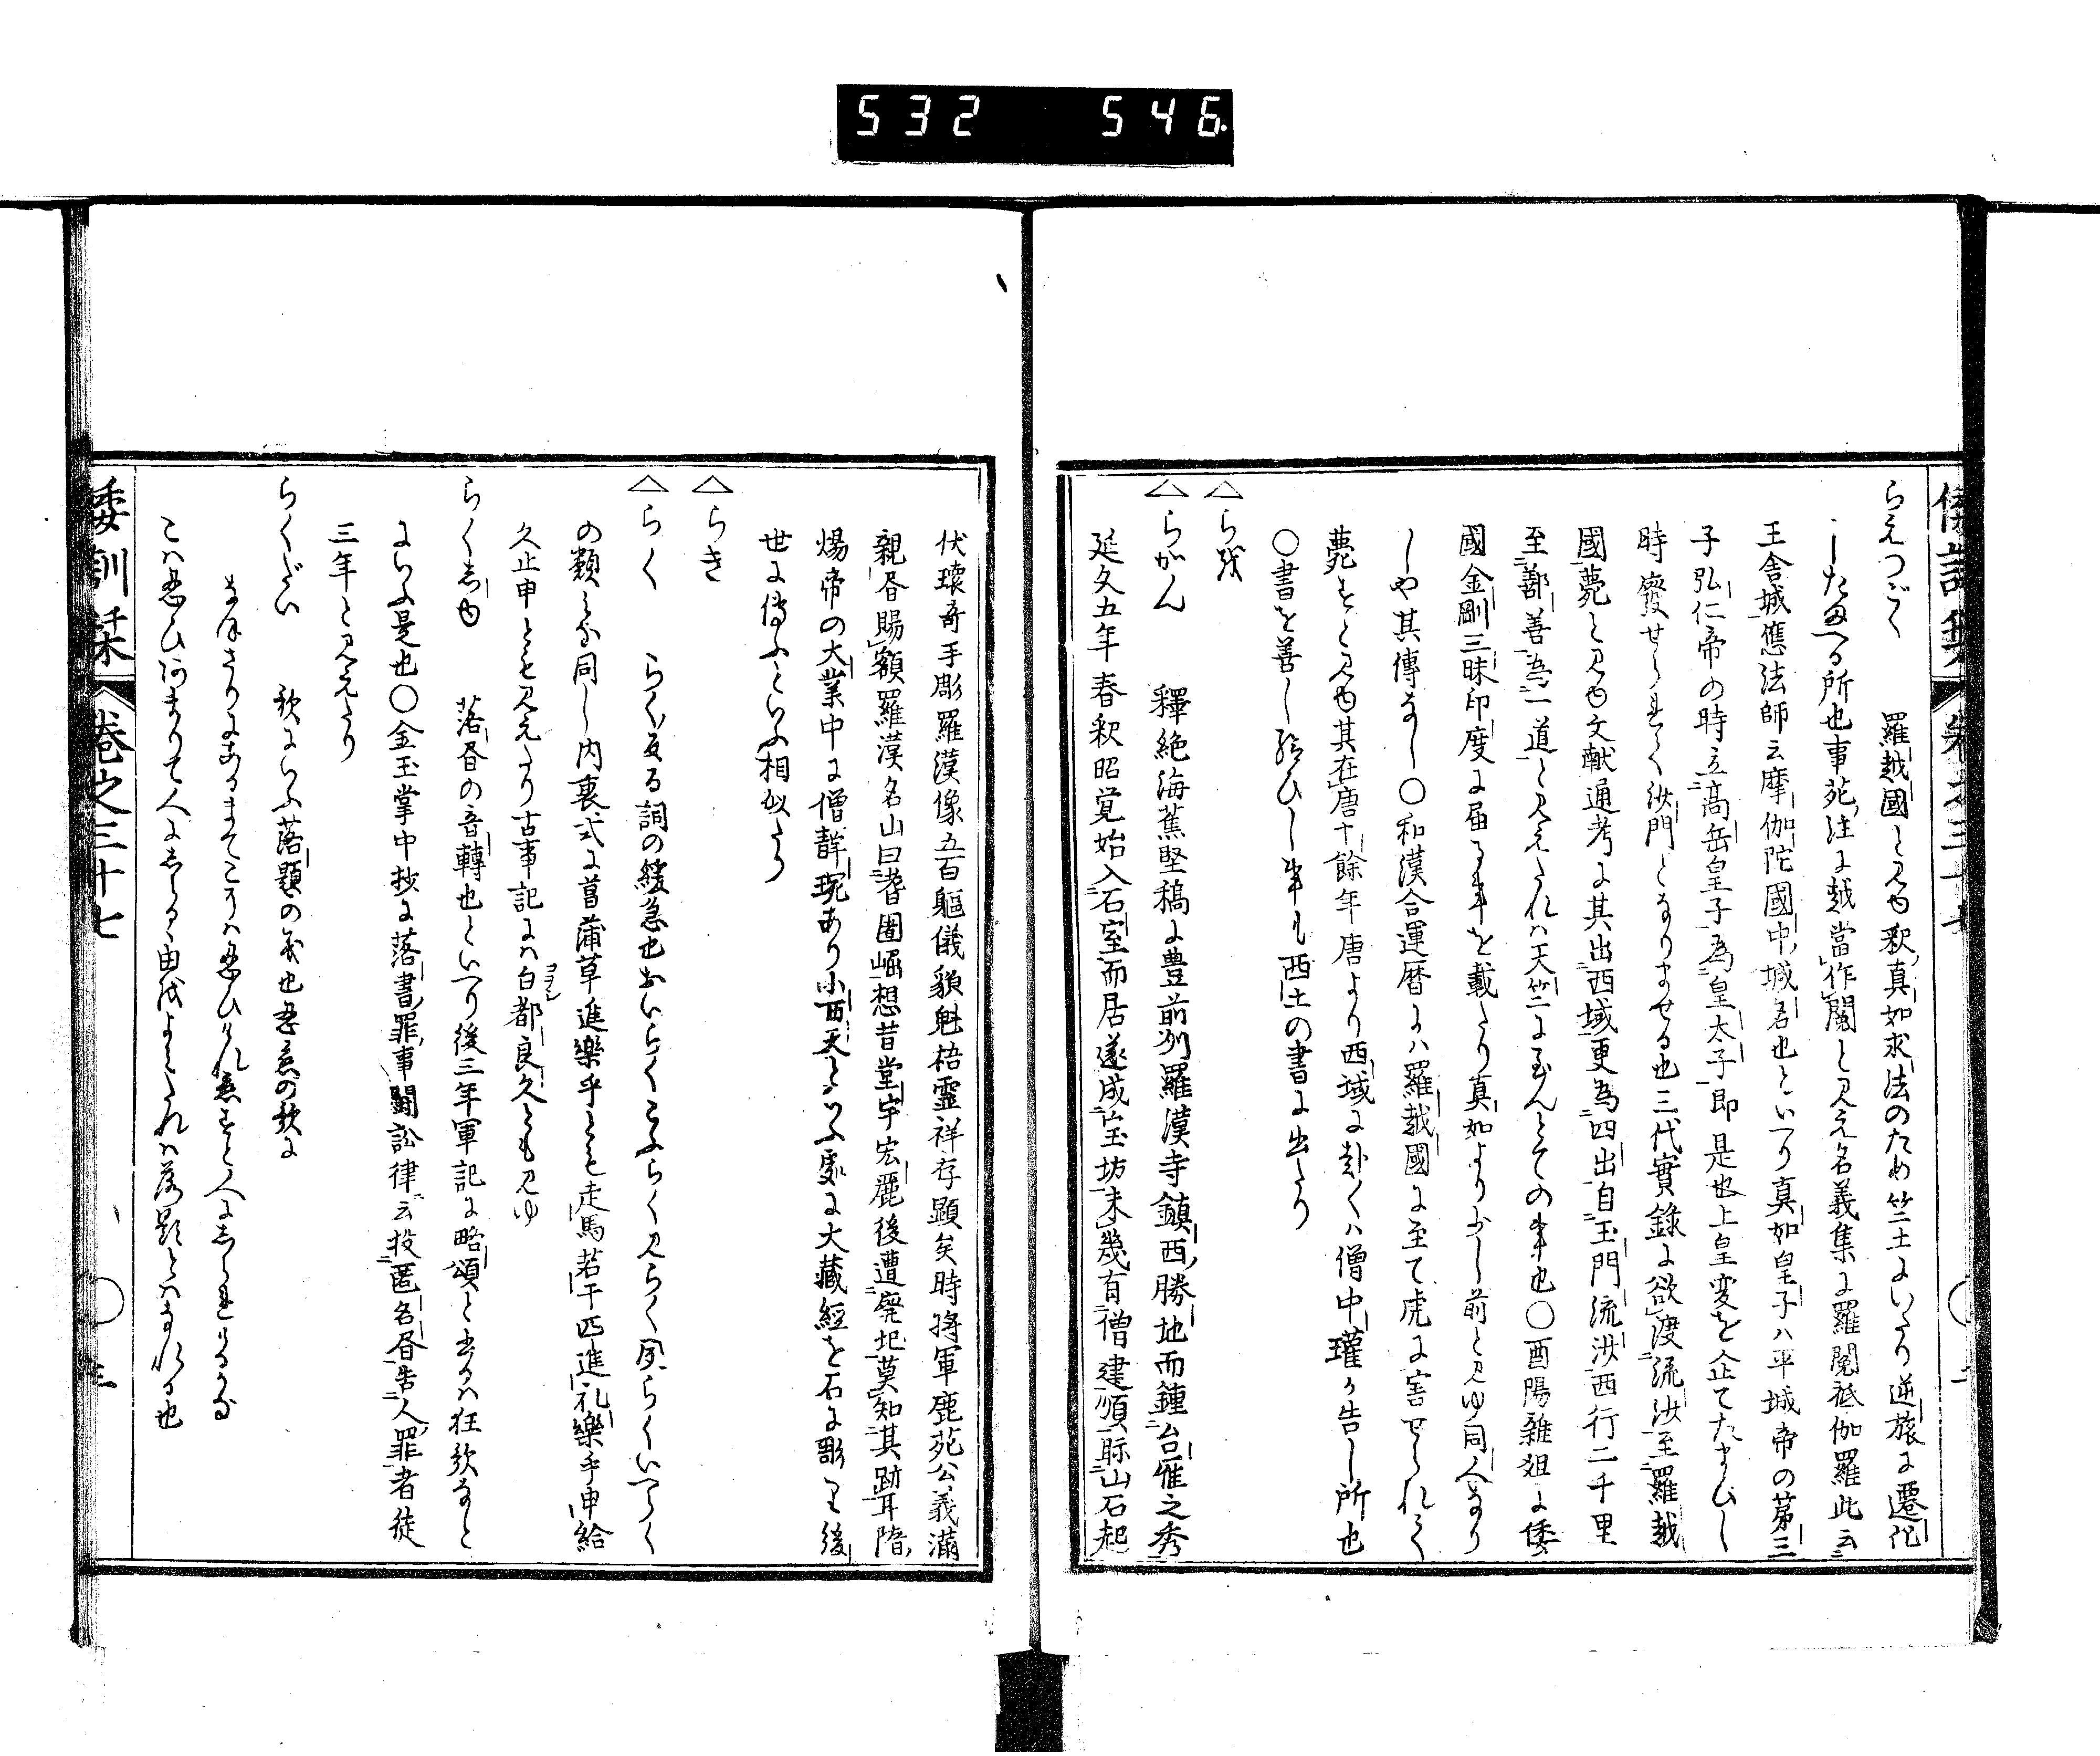 532 546
らえつごく 羅越國と見ゆ釈真如求法のため竺土にいたり逆旅に遷化
したまへる所也事苑注に越當作閲と見え名義集に羅閲祗伽羅此云
王舎城應法師云摩伽陀國中城名也といへり真如皇子ハ平城帝の第三
子弘仁帝の時立高岳皇子為皇太子即是也上皇変を企てたまひし
時廢せられて沙門となりませる也三代實録に欲渡流沙至羅越
國薨と見ゆ文献通考に其出西域更為四出自玉門流沙西行二千里
至鄯善為一道と見えたれハ天竺にるんとての事也〇酉陽雑俎に倭
國金剛三昧印度に届る事を載たり真如より少し前と見ゆ同人なり
しや其傳なし〇和漢合運暦にハ羅越國に至て虎に害せられて
薨すと見ゆ其在唐十餘年唐より西域に赴くハ僧中瓘か告し所也
〇書を善し給ひし事も西土の書に出たり
△ら我
△らがん 釋絶海蕉堅稿に豊前州羅漢寺鎮西勝地而鍾台雁之秀
延文五年春釈昭覚始入石室而居遂成宝坊未幾有僧建順聆山石起
伏瓌奇手彫羅漢像五百軀儀貌魁梧霊祥存顕矣時将軍鹿苑公義満
親昏賜額羅漢名山曰耆闍崛想昔堂宇宏麗後遭廃圯莫知其跡耳隋
煬帝の大業中に僧静琬あり小西天といふ處に大藏經を石に彫りて後
世に傳ふといふ相似たり
△らき
△らく らく反る詞の緩急也おいらくこふらく見らく夙らくいへらく
の類みな同し内裏式に菖蒲草進樂乎とも走馬若干匹進礼樂乎申給
久止申とも見えたり古事記にハ白都良久とも見ゆ
らく志ゆ 落昏の音轉也といへり後三年軍記に略頌と出るハ狂歌なと
にいふ是也〇金玉掌中抄に落書罪事闘訟律云投匿名昏告人罪者徒
三年と見えたり
らくだい 歌にいふ落題の義也忍恋の歌に
なほさりにあるまてこそハ忍ひけれ恋すと人にしられぬるかな
こハ忍ひあまりて人にしらるゝ由をよみたれハ落題とハなれる也
倭訓栞 巻之三十七